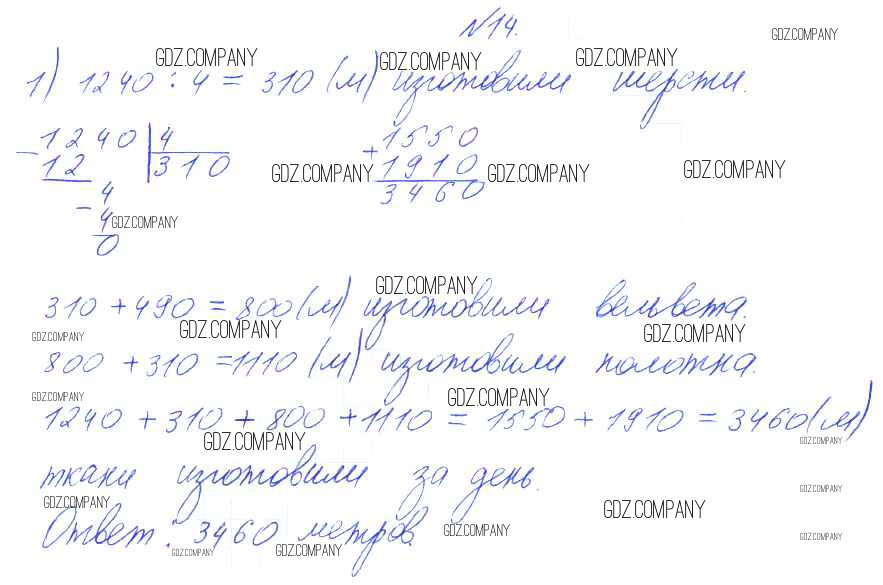 №14.
GDZ.COMPANY
GDZ.COMPANY GDZ.COMPANY GDZ.COMPANY
1) 1240 : 4 = 310 (м) изготовили шерсти.
1240 4
12 310
4
4
0
1550
+
1910
3460
GDZ.COMPANY GDZ.COMPANY GDZ.COMPANY
GDZ.COMPANY
GDZ.COMPANY
310 + 490 = 800 (м) изготовили вельвета.
GDZ.COMPANY GDZ.COMPANY GDZ.COMPANY
800 + 310 = 1110 (м) изготовили полотна.
GDZ.COMPANY GDZ.COMPANY
1240 + 310 + 800 + 1110 = 1550 + 1910 = 3460 (м)
GDZ.COMPANY GDZ.COMPANY
ткани изготовили за день.
GDZ.COMPANY
GDZ.COMPANY GDZ.COMPANY
Ответ: 3460 метров.
GDZ.COMPANY GDZ.COMPANY
GDZ.COMPANY GDZ.COMPANY